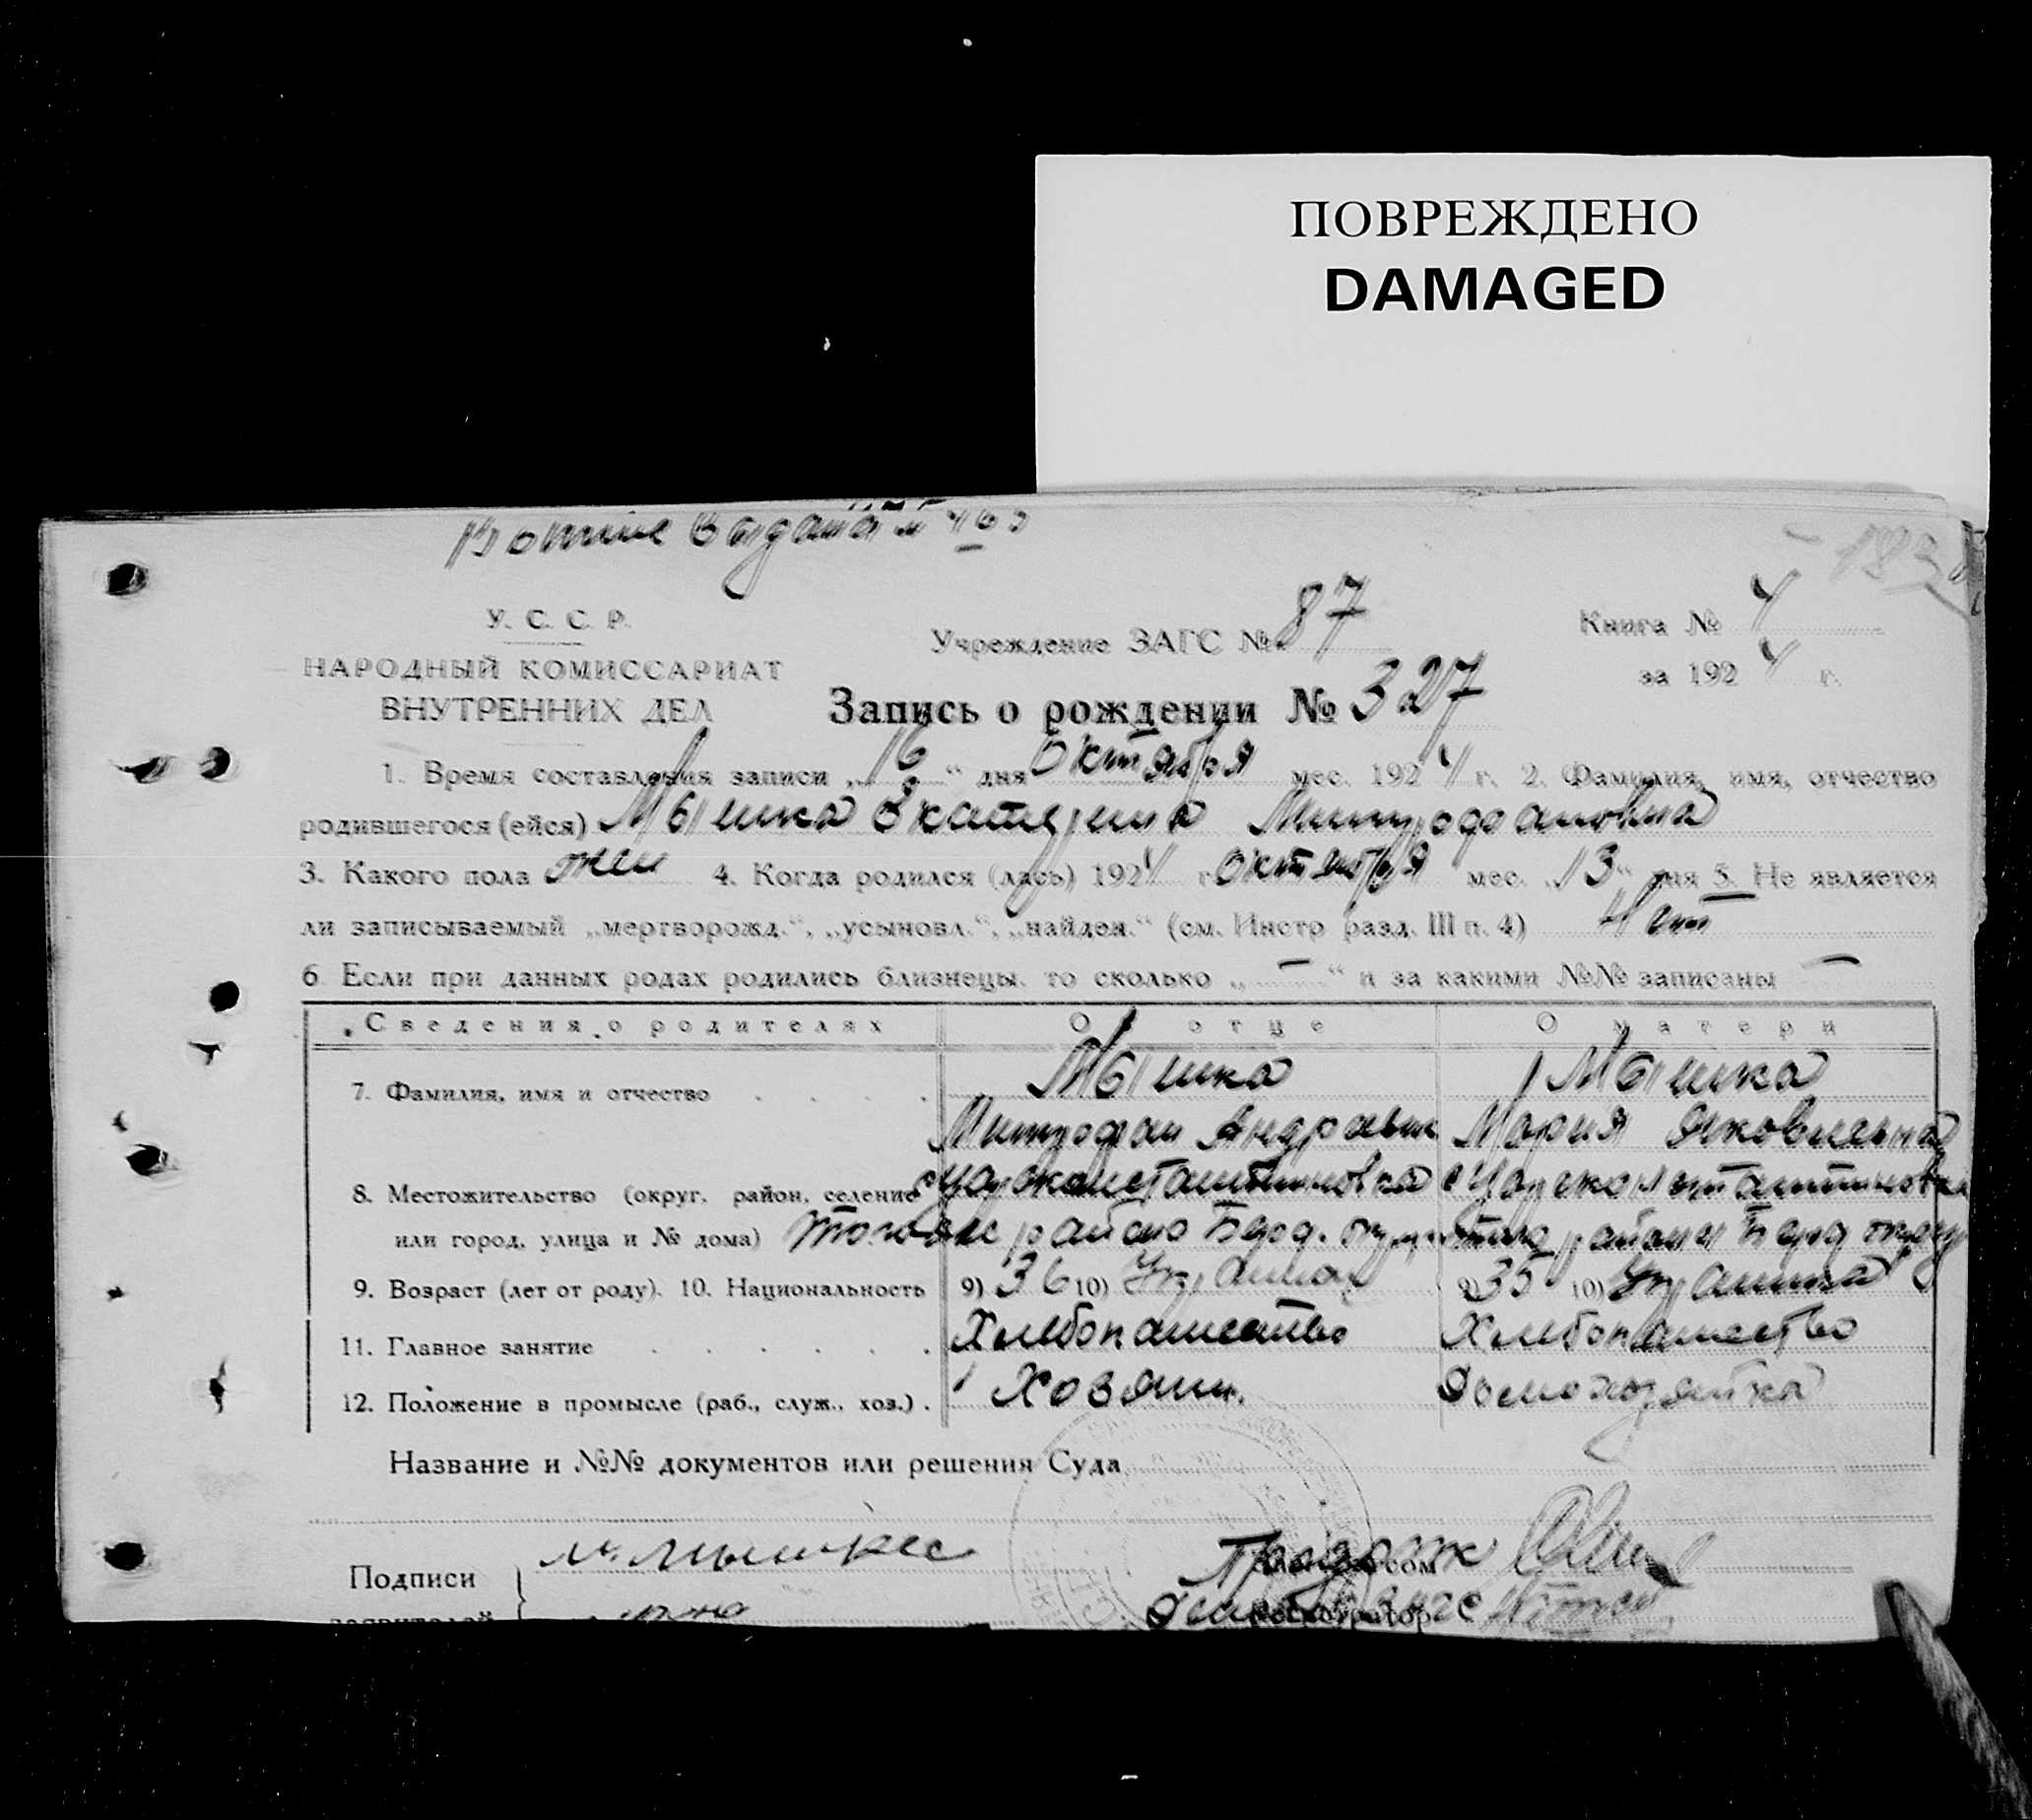 ПОВРЕЖДЕНО
DAMAGED
Копие выдана №
183
У. С. С. Р.
НАРОДНЫЙ КОМИССАРИАТ
ВНУТРЕННИХ ДЕЛ
Учреждение ЗАГС № 87
Книга № 4
за 1924 г.
Запись о рождении № 327
1. Время составления записи „16“ дня Октября мес. 1924 г. 2. Фамилия, имя, отчество
родившегося (ейся) Мышка Екатерина Митрофановна
3. Какого пола жен 4. Когда родился (лась) 1924 г Октября мес. „13“ дня 5. Не является
ли записываемый „мертворожд.“, „усыновл.“, „найден.“ (см. Инстр разд. III п. 4) Нет
6 Если при данных родах родились близнецы, то сколько „—“ и за какими №№ записаны —
Сведения о родителях О отце О матери
7. Фамилия, имя и отчество Мышка Мышка
Митрофан Андреевич Мария Яковлевна
8. Местожительство (округ, район, селение с Цареконстантиновка с Цареконстантиновка
или город, улица и № дома) района Берд. округ района Берд округ
9. Возраст (лет от роду). 10. Национальность 9) 36 10) Украинец 9) 35 10) Украинка
11. Главное занятие Хлебопашество Хлебопашество
12. Положение в промысле (раб., служ., хоз.) Хозяин. Домохозяйка
Название и №№ документов или решения Суда
Подписи м. Мышка
заявителей